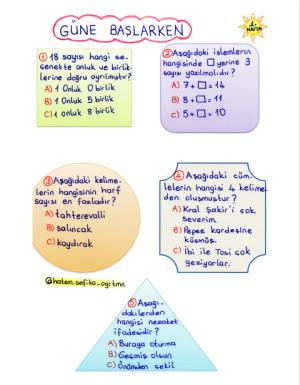 GÜNE BAŞLARKEN
1. HAFTA
① 18 sayısı hangi se-
çenekte onluk ve birlik-
lerine doğru ayrılmıştır?
A) 1 Onluk 0 birlik
B) 1 Onluk 5 birlik
C) 1 onluk 8 birlik
② Aşağıdaki işlemlerin
hangisinde □ yerine 3
sayısı yazılmalıdır?
A) 7 + □ = 14
B) 8 + □ = 11
C) 5 + □ = 10
③ Aşağıdaki kelime-
lerin hangisinin harf
sayısı en fazladır?
A) tahterevalli
B) salıncak
C) kaydırak
④ Aşağıdaki cüm-
lelerin hangisi 4 kelime-
den oluşmuştur?
A) Kral Şakir'i çok
severim.
B) Pepee kardeşine
küsmüş.
C) İbi ile Tosi çok
geziyorlar.
@hatem.sefika_ogrtmn
⑤ Aşağı-
dakilerden
hangisi nezaket
ifadesidir?
A) Buraya oturma
B) Geçmiş olsun
C) Önümden çekil